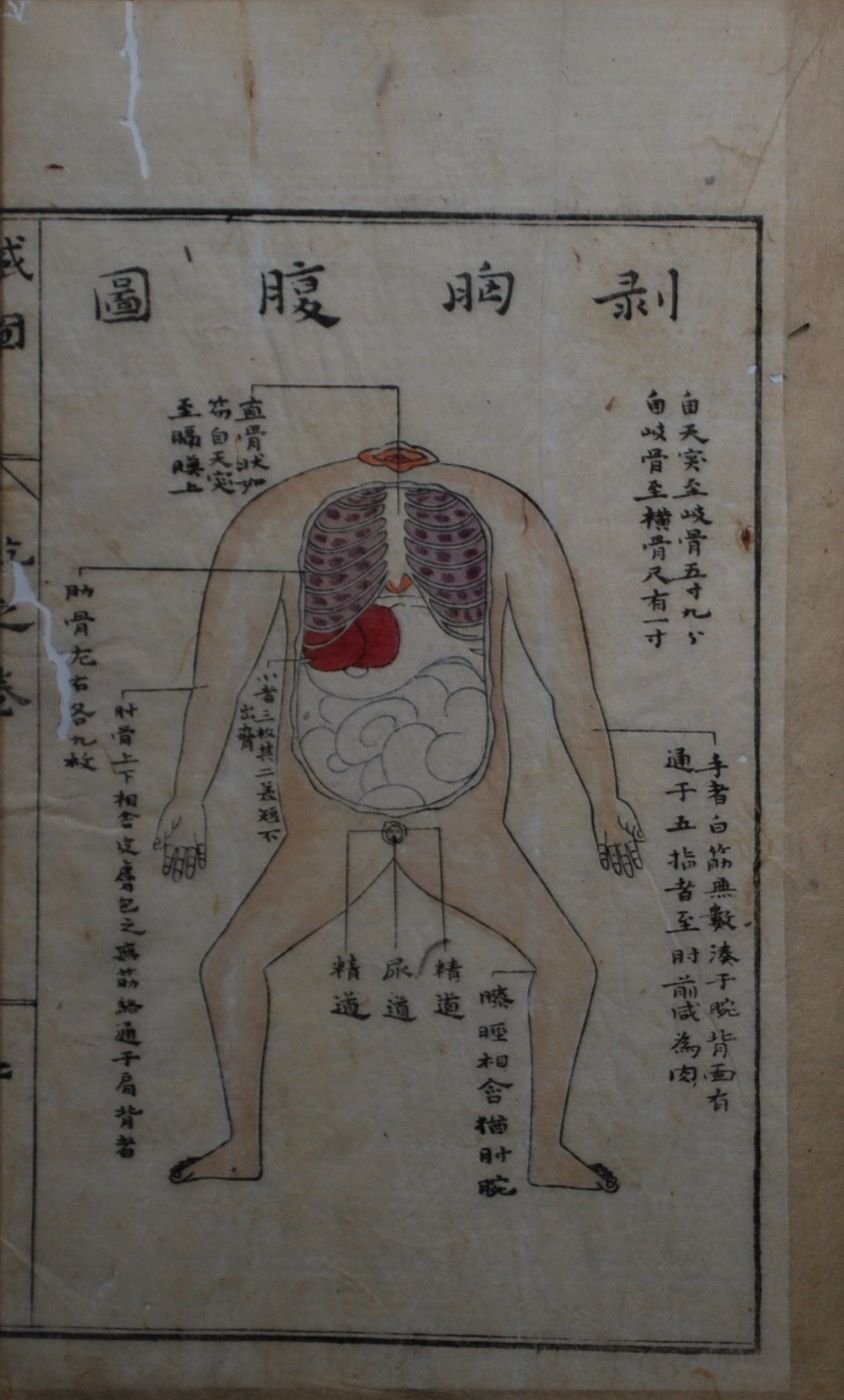 剥胸腹圖
自天突至岐骨五寸九分
自岐骨至横骨尺有一寸
直骨狀如
筋自天突
至膈膜上
手者白筋無數湊于腕背面有
通于五指者至肘前咸為肉
肋骨左右各九枚
小者三枚其二甚短不
出齊
肘骨上下相合皮膚包之無筋絡通于肩背者
精道
尿道
精道
膝脛相合猶肘腕